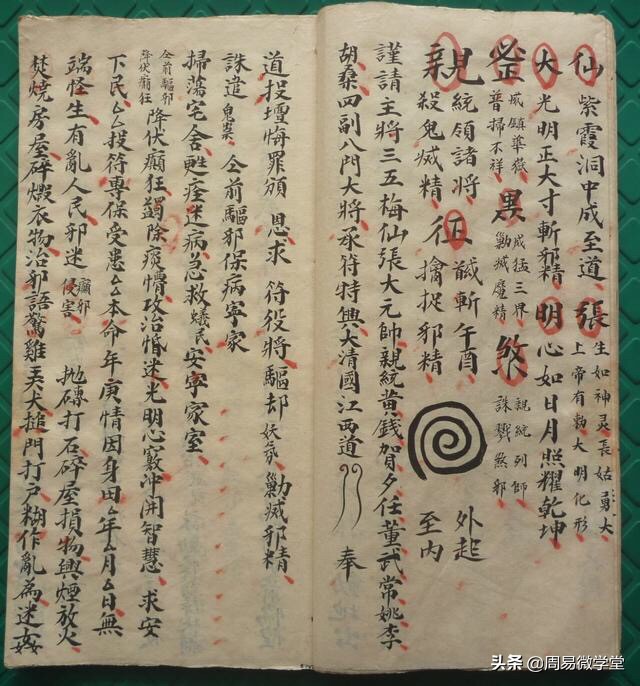 仙 紫霞洞中成至道 張 生如神灵長姑勇大 上帝有勅大明化形
大 光明正大寸斬邪精 明 心如日月照耀乾坤
威鎮華嶽 普掃不祥 黑 威猛三界 勦滅魔精 煞 親統列師 誅戮煞邪
親 統領諸將 正 馘斬午酉 外起
親 殺鬼滅精 征 擒捉邪精 至内
謹請主將三五梅仙張大元帥親統黄錢賀夕任董武常姚李
胡桑四副八門大將承符特興大清國江西道 奉
道投壇悔罪頒 恩求 符役將驅却 妖氛 勦滅邪精
誅遣 鬼祟 仝前驅邪保病宁家
掃蕩宅舍甦痊迷病急救 蟻民 安寧家室
仝前驅邪 降伏癲狂 降伏癲狂蠲除痰懵攻治惛迷光明心竅冲開智慧 求安
下民厶厶投符專保受患厶厶本命 年庚情因身由厶年厶月厶日無
端怪生有亂人民邪迷 癲邪 侵害 抛磚打石碎屋損物興煙放火
焚燒房屋碎煅衣物治邪語驚雞美犬搥門打戶糊作亂為迷姦
头条 @周易微学堂